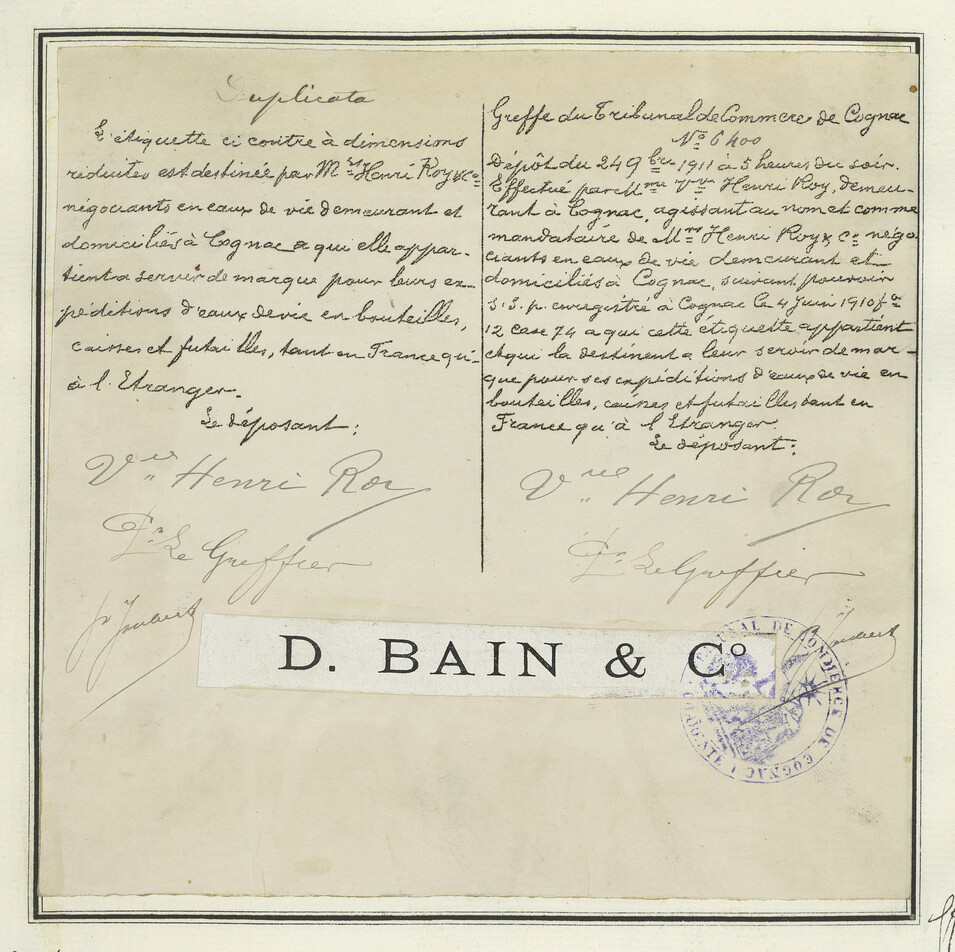 Duplicata
L'étiquette ci contre à dimensions
réduites est destinée par Mrs Henri Roy & Co
négociants en eaux de vie demeurant et
domiciliés à Cognac a qui elle appar-
tient a servir de marque pour leurs ex-
péditions d'eaux de vie en bouteilles,
caisses et futailles, tant en France qu'
à l'Etranger.
Le déposant:
Vve Henri Roy
Pr Le Greffier
Greffe du Tribunal de Commerce de Cognac
No 6400
Dépôt du 24 9bre 1911 à 5 heures du soir.
Effectué par Mme Vve Henri Roy, demeu-
rant à Cognac, agissant au nom et comme
mandataire de Mrs Henri Roy & Co négo-
ciants en eaux de vie demeurant et
domiciliés à Cognac, suivant pouvoir
s.s.p. enregistré à Cognac le 4 Juin 1910 fo
12 case 74 a qui cette étiquette appartient
et qui la destinent a leur servir de mar-
que pour ses expéditions d'eaux de vie en
bouteilles, caisses et futailles tant en
France qu'à l'Etranger
Le déposant:
Vve Henri Roy
Pr Le Greffier
D. BAIN & Co
TRIBUNAL DE COMMERCE DE COGNAC